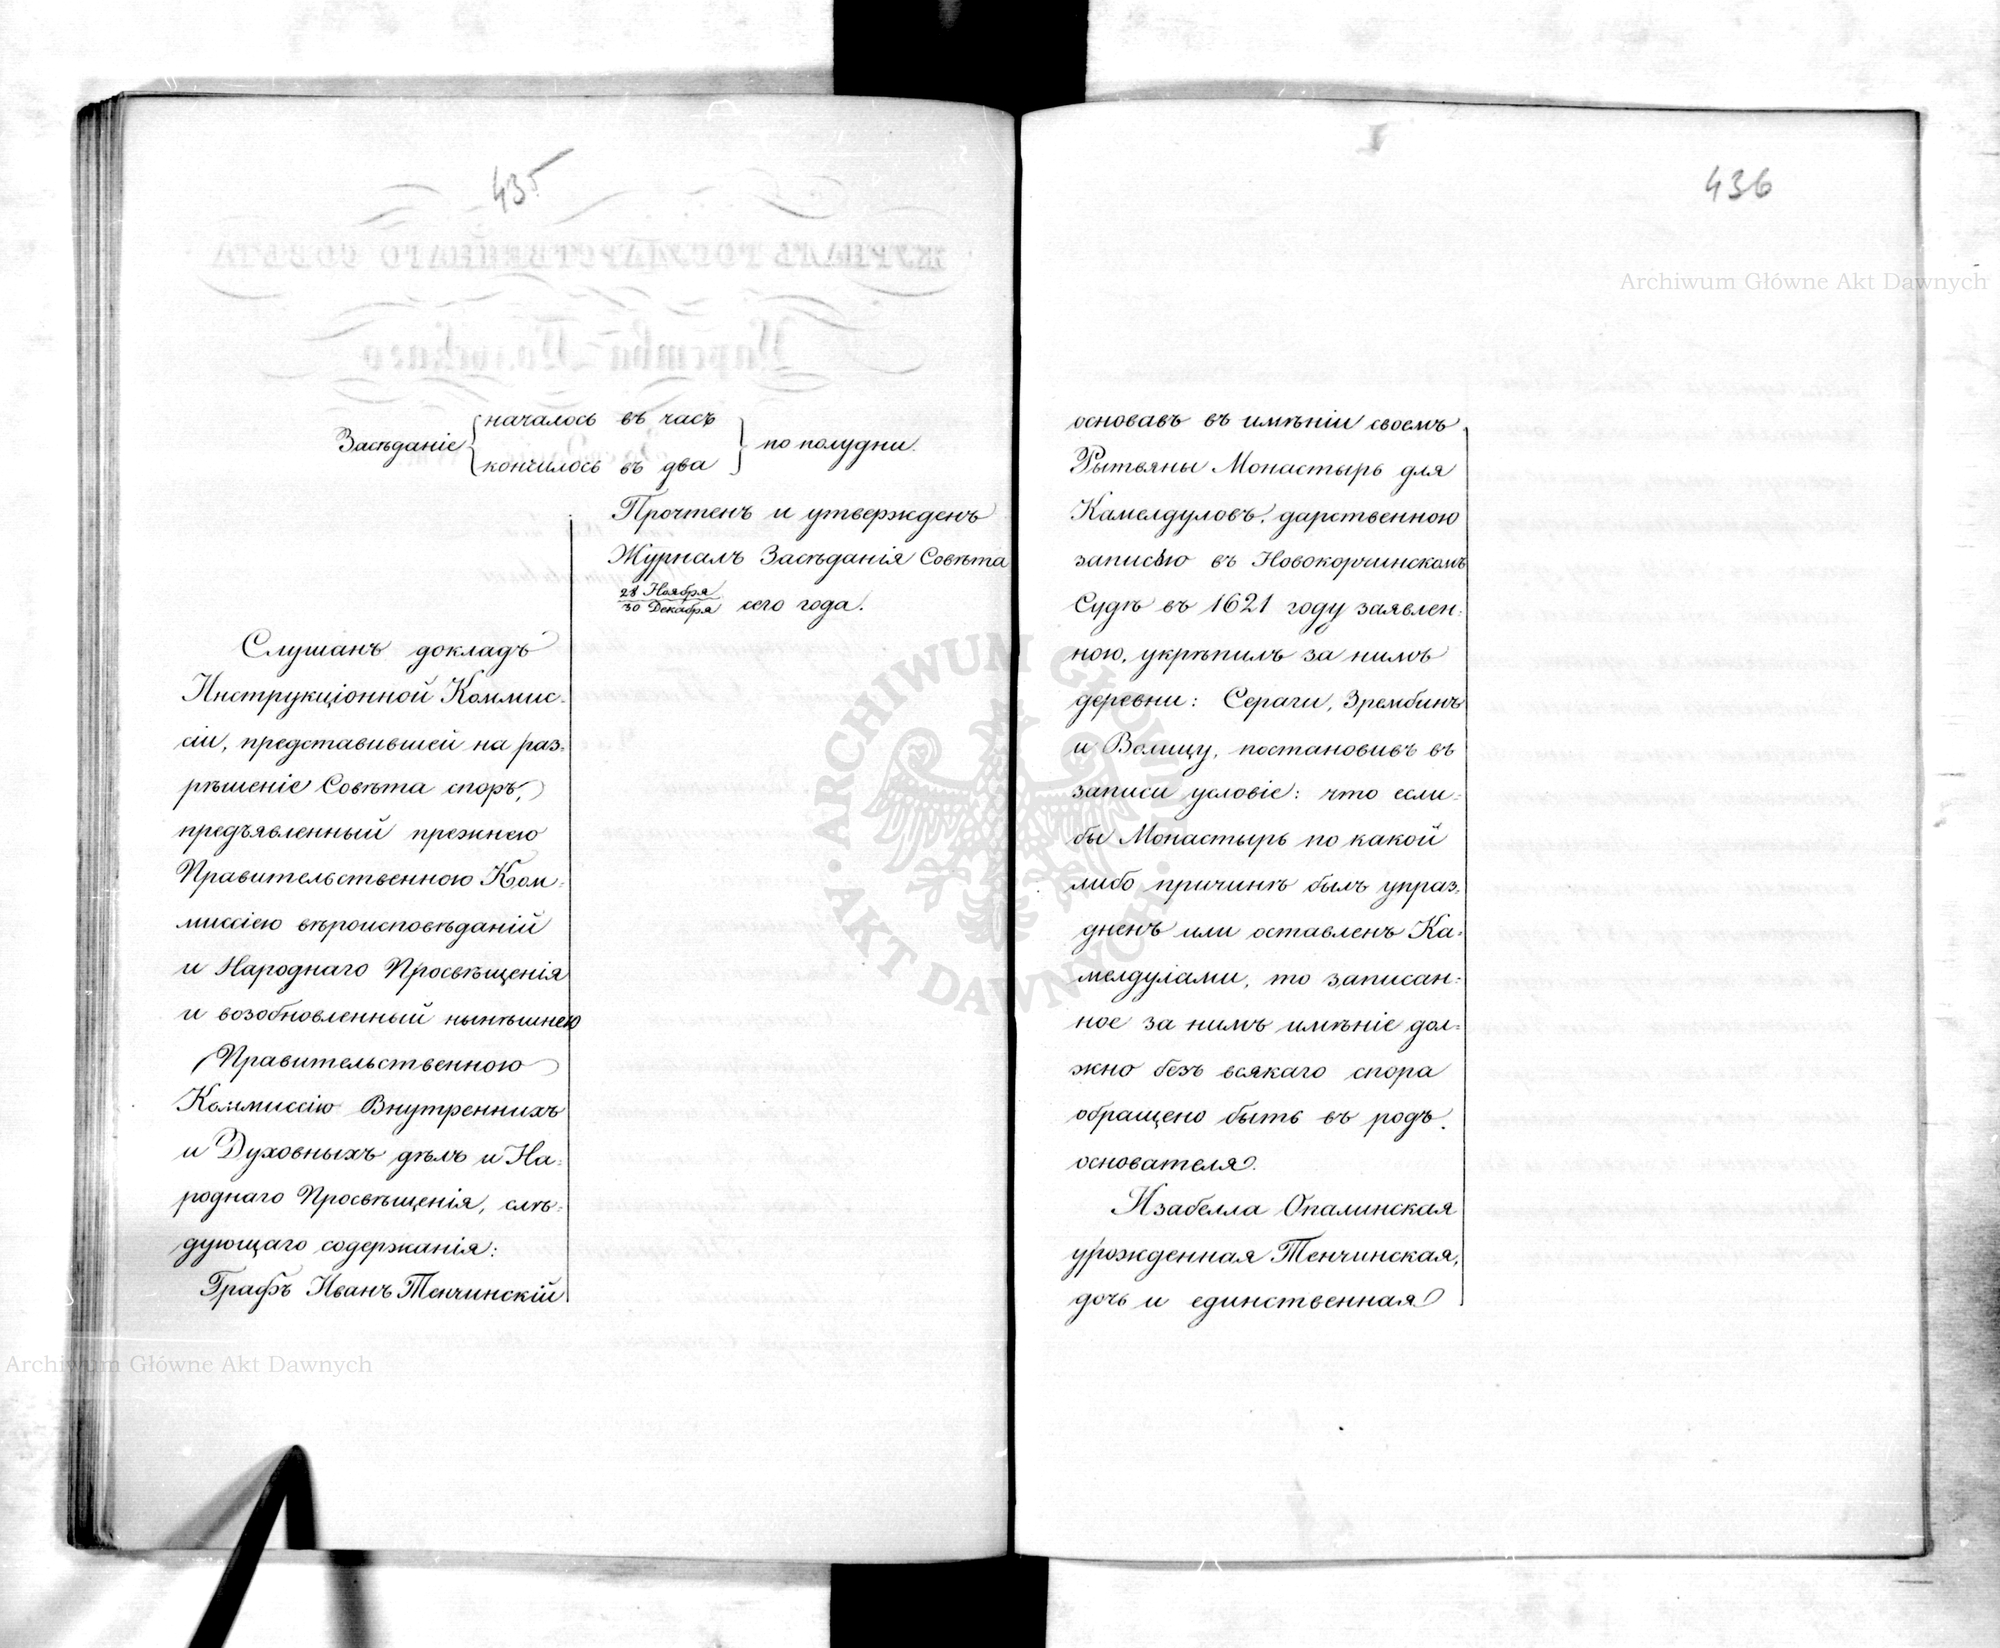 435
Засѣданіе { началось въ часъ } по полудни.
кончилось въ два
Прочтенъ и утвержденъ
Журналъ Засѣданія Совѣта
28 Ноября
30 Декабря сего года.
Слушанъ докладъ
Инструкціонной Коммис-
сіи, представившей на раз-
рѣшеніе Совѣта споръ,
предъявленный прежнею
Правительственною Ком-
миссіею вѣроисповѣданій
и Народнаго Просвѣщенія
и возобновленный нынѣшнею
Правительственною
Коммиссію Внутреннихъ
и Духовныхъ дѣлъ и На-
роднаго Просвѣщенія, слѣ-
дующаго содержанія:
Графъ Иванъ Тенчинскій
436
основавъ въ имѣніи своемъ
Рытвяны Монастырь для
Камелдуловъ, дарственною
записью въ Новокорчинскомъ
Судѣ въ 1621 году заявлен-
ною, укрѣпилъ за нимъ
деревни: Сераги, Зрембинъ
и Волицу, постановивъ въ
записи условіе: что если-
бы Монастырь по какой
либо причинѣ былъ упраз-
дненъ или оставленъ Ка-
мелдулами, то записан-
ное за нимъ имѣніе дол-
жно безъ всякаго спора
обращено быть въ родъ
основателя.
Изабелла Опалинская
урожденная Тенчинская,
дочь и единственная
Archiwum Główne Akt Dawnych
Archiwum Główne Akt Dawnych
ARCHIWUM GŁÓWNE AKT DAWNYCH